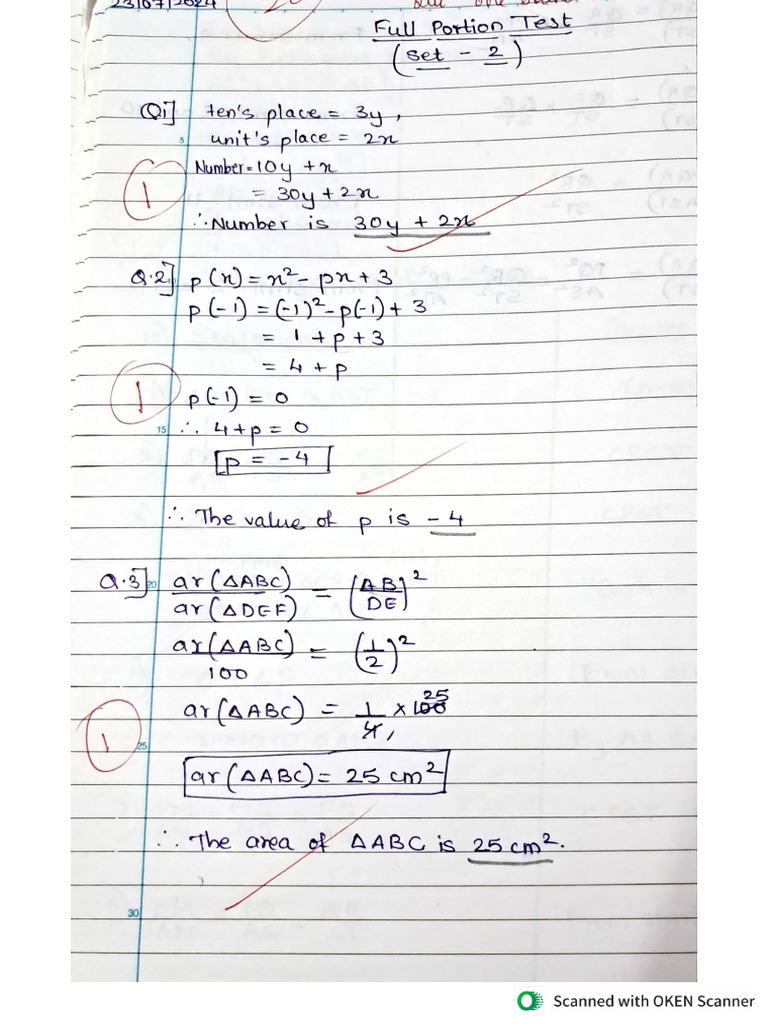 23/07/2024
Full Portion Test
(Set - 2)
Q1] ten's place = 3y,
unit's place = 2x
Number = 10y + x
= 30y + 2x
1
∴ Number is 30y + 2x
Q.2] p(x) = x² - px + 3
p(-1) = (-1)² - p(-1) + 3
= 1 + p + 3
= 4 + p
1
p(-1) = 0
∴ 4 + p = 0
p = -4
∴ The value of p is -4
Q.3] ar(△ABC) / ar(△DEF) = (AB/DE)²
ar(△ABC) / 100 = (1/2)²
ar(△ABC) = 1/4 × 100 25
1
ar(△ABC) = 25 cm²
∴ The area of △ABC is 25 cm².
5
15
20
25
30
Scanned with OKEN Scanner